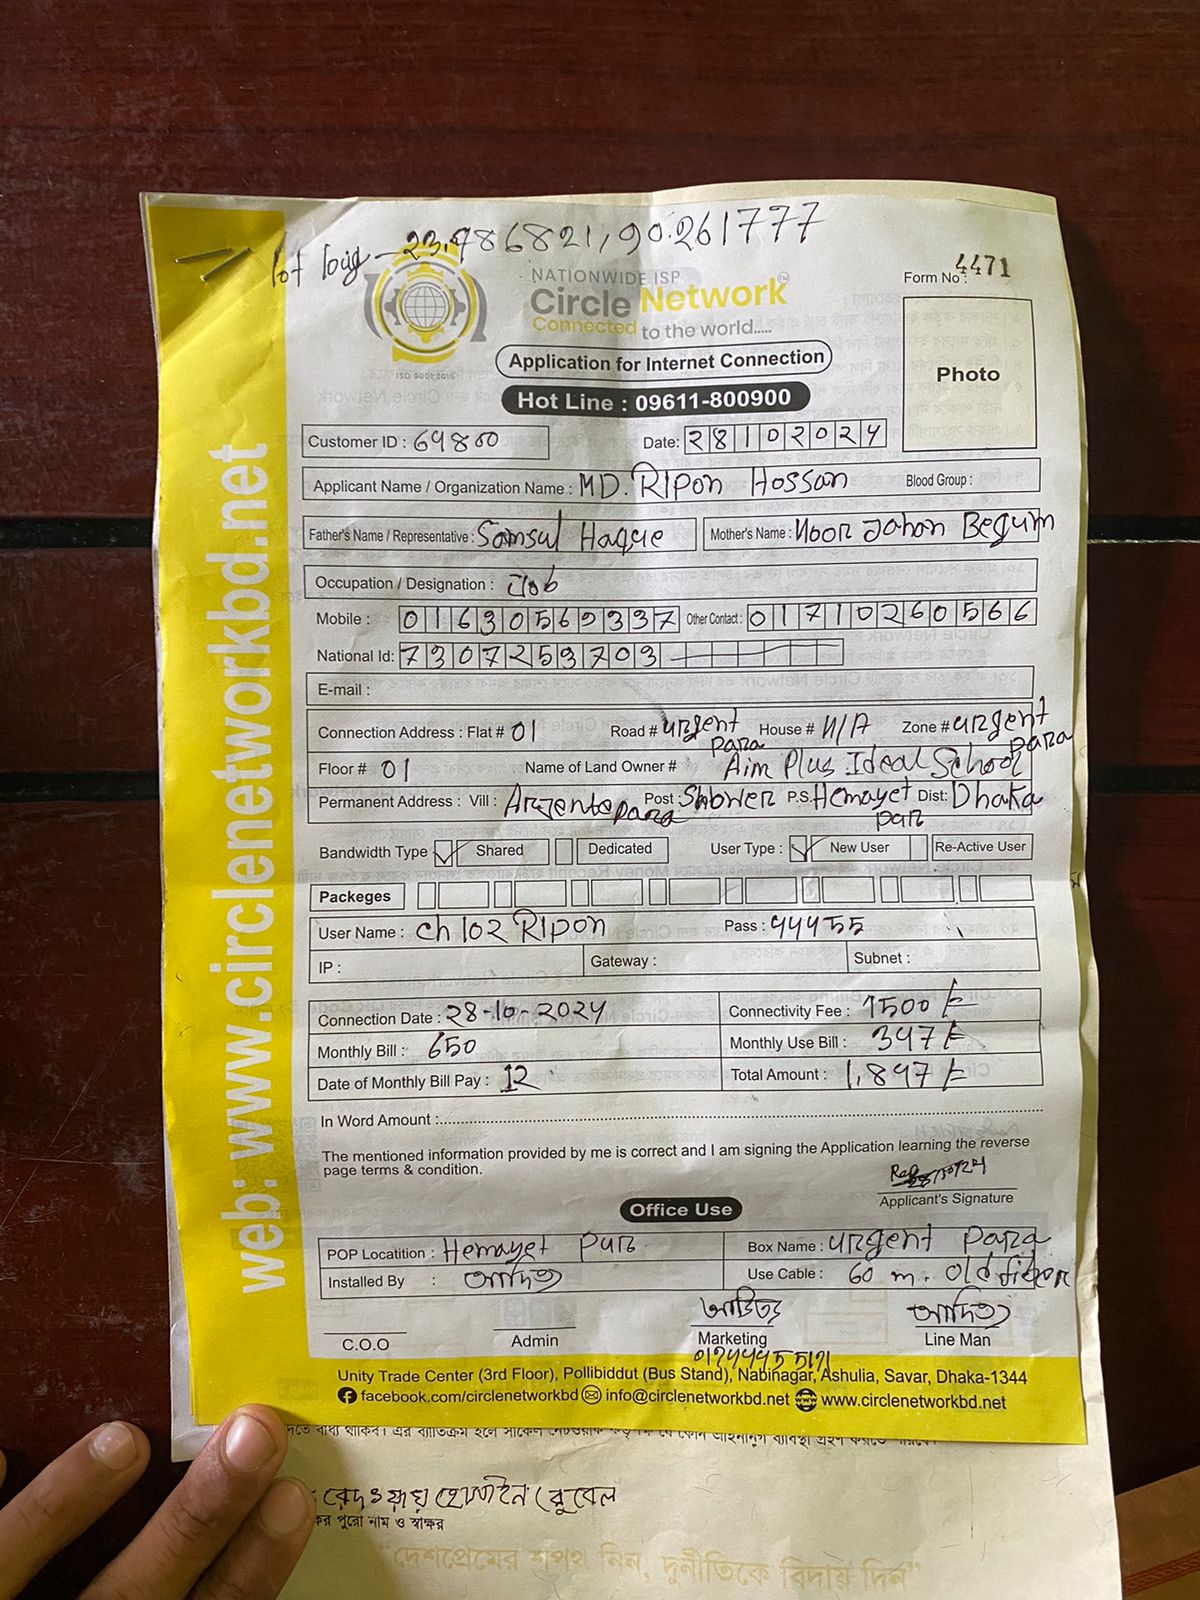 lat long - 23.786821, 90.261777
NATIONWIDE ISP
Circle Network
Connected to the world.....
ISO 9001:2015
Form No : 4471
Photo
Application for Internet Connection
Hot Line : 09611-800900
Customer ID : 69800 Date: 28102024
Applicant Name / Organization Name : MD. RIPon Hossan Blood Group :
Father's Name / Representative : Samsul Haque Mother's Name : Noor Jahan Begum
Occupation / Designation : Job
Mobile : 01630569337 Other Contact : 01710260566
National Id: 7307253703
E-mail :
Connection Address : Flat # 01 Road # urgent para House # N/A Zone # urgent para
Floor # 01 Name of Land Owner # Aim Plus Ideal School
Permanent Address : Vill : Argente para Post Shbwer P.S. Hemayet par Dist: Dhaka
Bandwidth Type Shared Dedicated User Type : New User Re-Active User
Packeges
User Name : ch102RIpon Pass : 44455
IP : Gateway : Subnet :
Connection Date : 28-10-2024 Connectivity Fee : 1500/=
Monthly Bill : 650 Monthly Use Bill : 347/=
Date of Monthly Bill Pay : 12 Total Amount : 1,847/=
In Word Amount :
The mentioned information provided by me is correct and I am signing the Application learning the reverse
page terms & condition.
28/10/24
Applicant's Signature
Office Use
POP Locatition : Hemayet Pur Box Name : urgent para
Installed By : আদিত্য Use Cable : 60 m. old fiber
আদিত্য আদিত্য
C.O.O Admin Marketing Line Man
Unity Trade Center (3rd Floor), Pollibiddut (Bus Stand), Nabinagar, Ashulia, Savar, Dhaka-1344
facebook.com/circlenetworkbd info@circlenetworkbd.net www.circlenetworkbd.net
web: www.circlenetworkbd.net
রেদওয়ায় হোসাইন (রুবেল
পুরো নাম ও স্বাক্ষর
“দেশপ্রেমের শপথ নিন, দুর্নীতিকে বিদায় দিন”